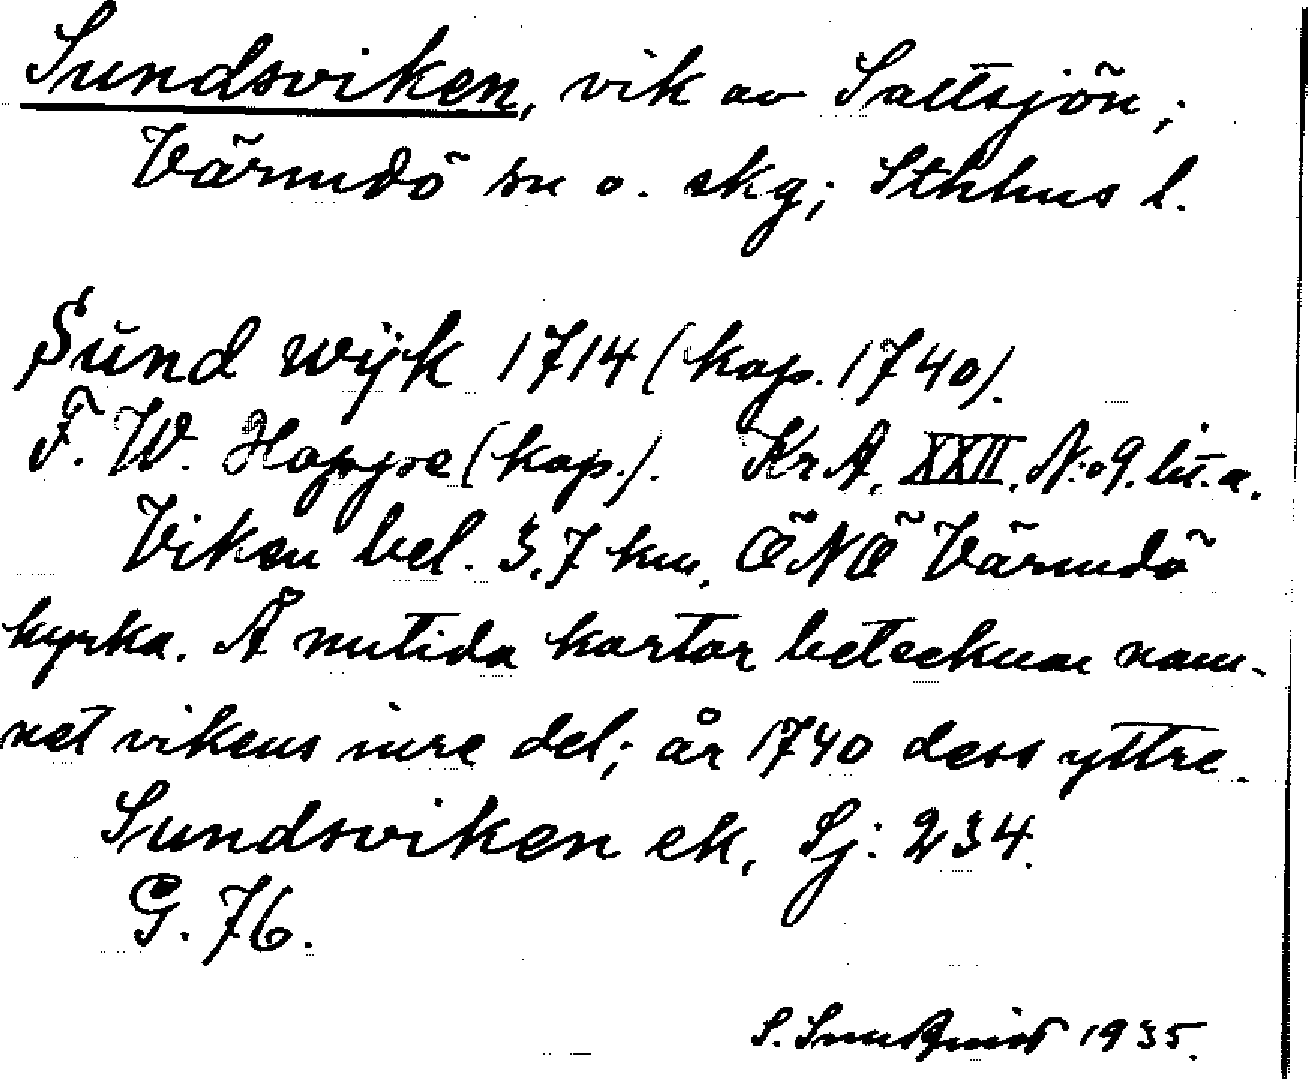 Sundsviken, vik av Saltsjön;
Värmdö sn o. skg; Sthlms l.
Sŭnd wijk 1714 (kop. 1740).
F. W. Hoppe (kop.). Kr.A. XXII. N:o 9. lit. a.
Viken bel. 3,7 km. ÖNÖ Värmdö
kyrka. Å nutida kartor betecknar nam-
net vikens inre del; år 1740 dess yttre.
Sundsviken ek. Sj: 234.
G. 76.
S. 1935.